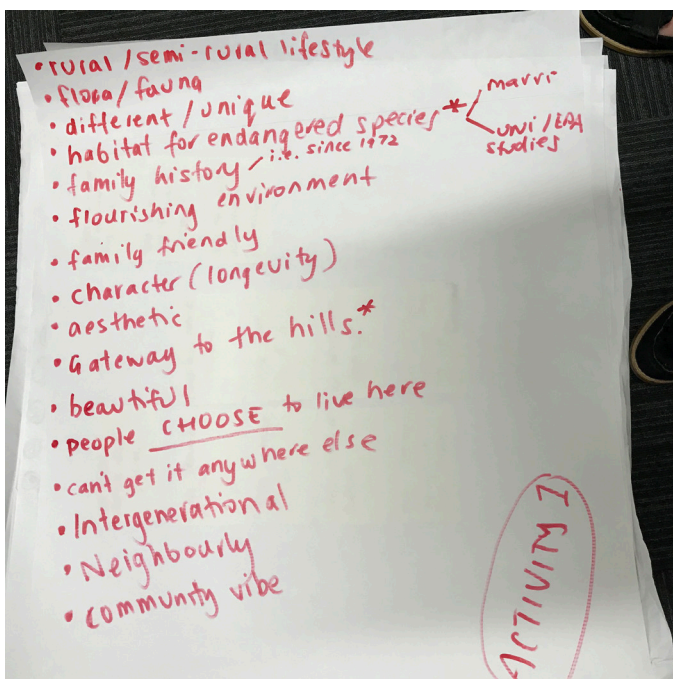 • rural / semi-rural lifestyle
• flora / fauna
• different / unique
• habitat for endangered species *
marri
UNI / EPA studies
• family history / i.e. since 1972
• flourishing environment
• family friendly
• character (longevity)
• aesthetic
• Gateway to the hills.*
• beautiful
• people CHOOSE to live here
• can't get it anywhere else
• Intergenerational
• Neighbourly
• community vibe
ACTIVITY 1